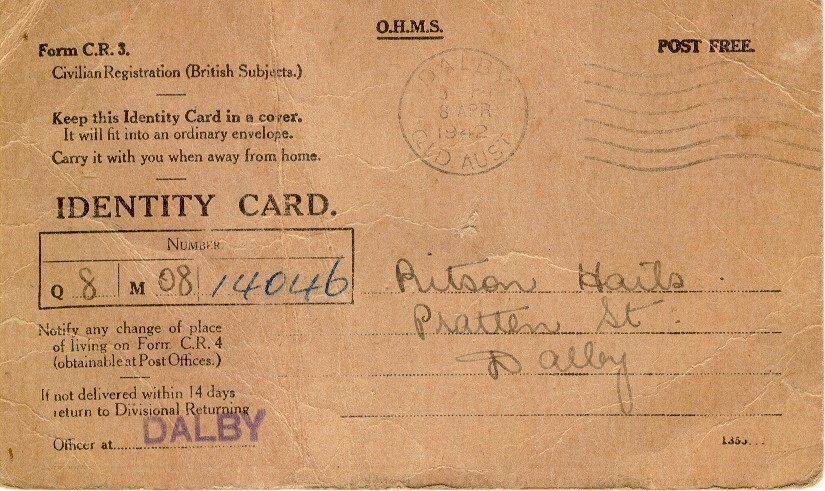 O.H.M.S.
POST FREE.
Form C.R. 3.
Civilian Registration (British Subjects.)
Keep this Identity Card in a cover.
It will fit into an ordinary envelope.
Carry it with you when away from home.
DALBY
8 APR
1942
QLD. AUST
IDENTITY CARD.
NUMBER.
Q 8 M 08 14046
Ritson
Pratten St.
Dalby
Notify any change of place
of living on Form C.R. 4
(obtainable at Post Offices.)
If not delivered within 14 days
return to Divisional Returning
Officer at DALBY